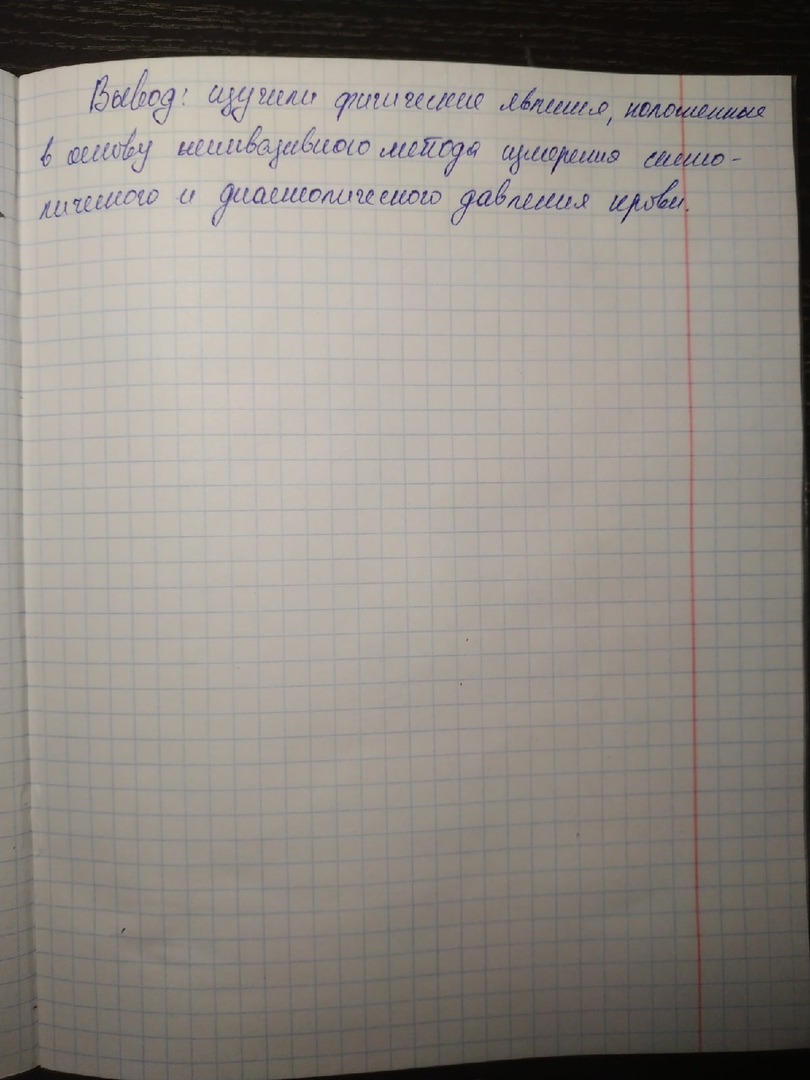 Вывод: изучили физические явления, положенные
в основу неинвазивного метода измерения систо-
лического и диастолического давления крови.